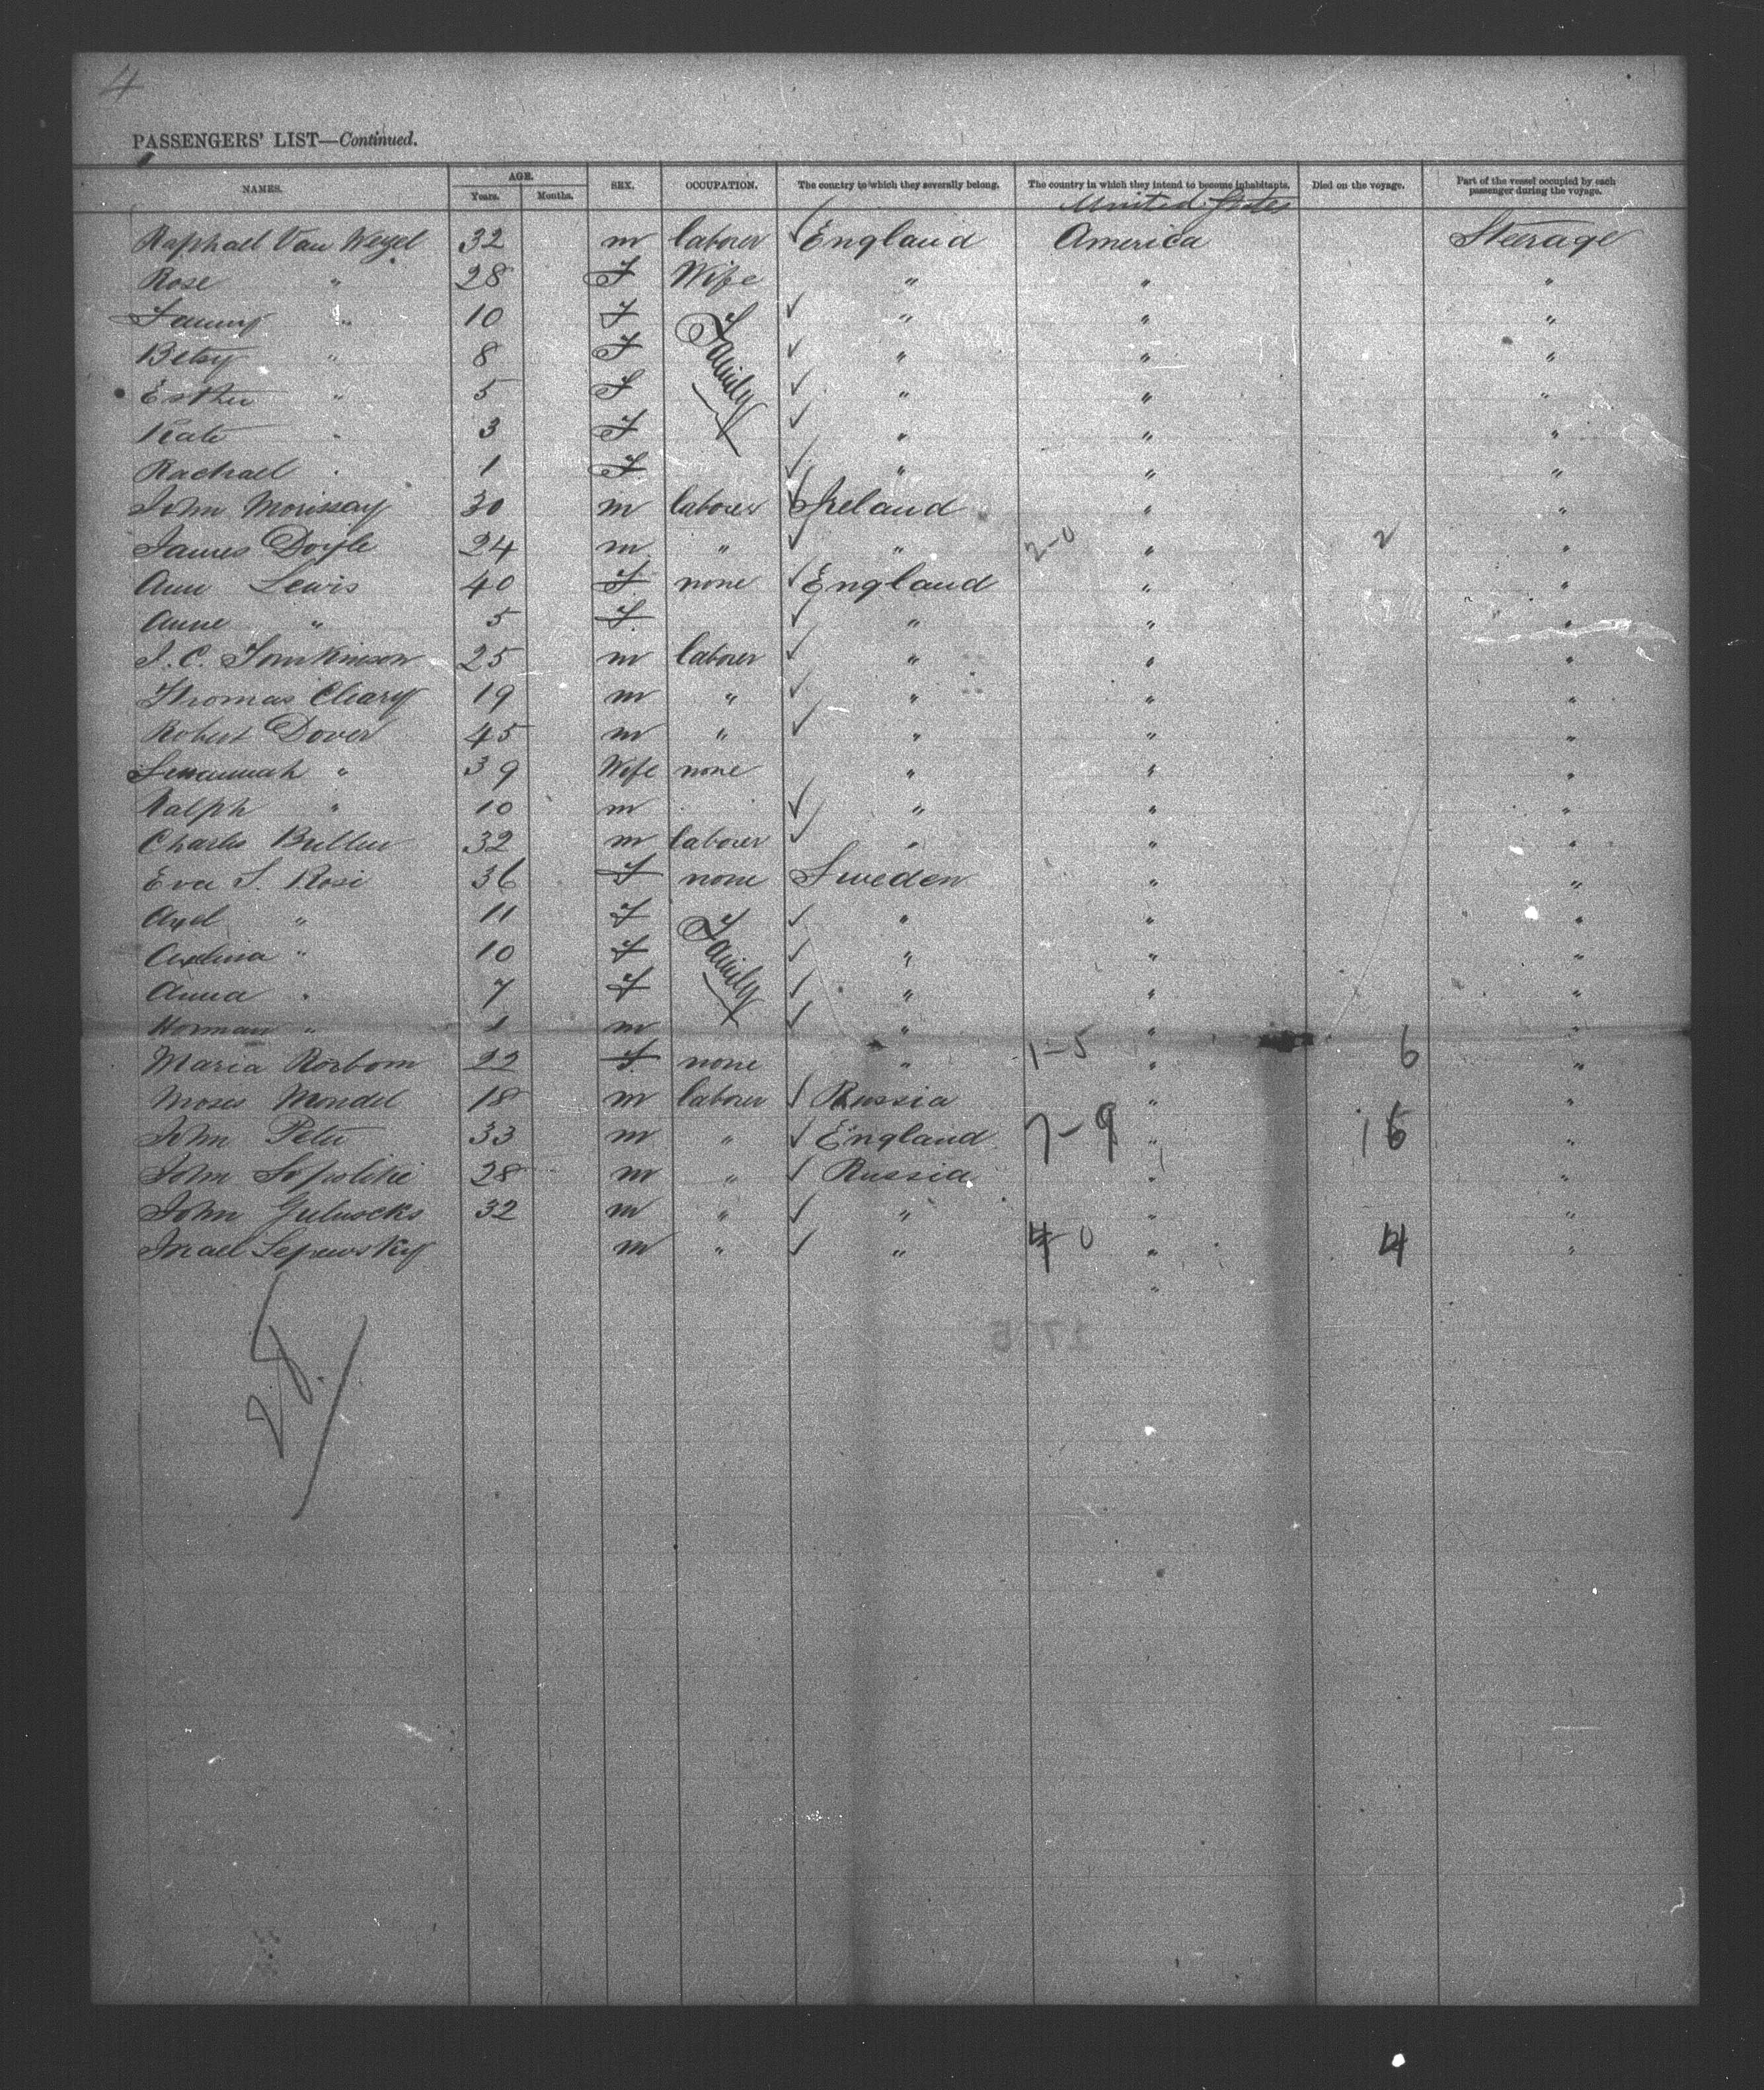 4
PASSENGERS' LIST—Continued.
NAMES. AGE. Years. Months. SEX. OCCUPATION. The country to which they severally belong. The country in which they intend to become inhabitants. Died on the voyage. Part of the vessel occupied by each passenger during the voyage.
United States
Raphael Van Weyel 32 m laborer ✓ England America Steerage
Rose " 28 F Wife " " "
Fanny " 10 F Family ✓ " " "
Betsy " 8 F ✓ " " "
Esther " 5 F ✓ " " "
Kate " 3 F ✓ " " "
Rachael " 1 F ✓ " " "
John Morissay 30 m laborer ✓ Ireland " "
James Doyle 24 m " ✓ " 2-0 " 2 "
Ann Lewis 40 F none ✓ England " "
Anne " 5 F ✓ " " "
J. C. Tomkinson 25 m laborer ✓ " " "
Thomas Cleary 19 m " ✓ " " "
Robert Dover 45 m " ✓ " " "
Susannah " 39 Wife none " " "
Ralph " 10 m ✓ " " "
Charles Buller 32 m laborer ✓ " " "
Eva S. Rosi 36 F none Sweden " "
Axel " 11 F Family ✓ " " "
Axelina " 10 F ✓ " " "
Anna " 7 F ✓ " " "
Herman " 1 m ✓ " " "
Maria Rosbom 22 F none " 1-5 " 6 "
Moses Mendel 18 m laborer ✓ Russia " "
John Peter 33 m " ✓ England 7-9 " 16 "
John 28 m " ✓ Russia " "
John 32 m " ✓ " " "
m " ✓ " 4 0 " 4 "
"
28